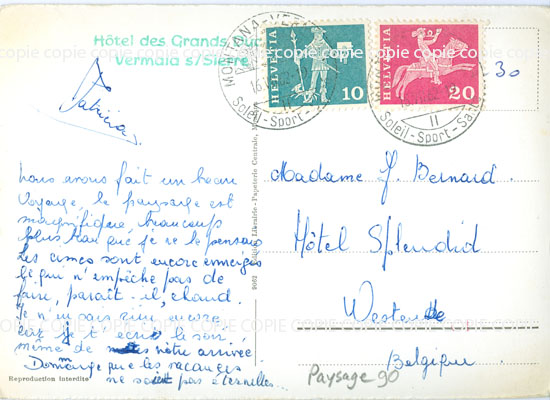 COPIE COPIE COPIE COPIE COPIE COPIE COPIE
Hôtel des Grands
Vermala s/Sierre
MONTANA-VERMALA
Soleil-Sport-
HELVETIA
10
HELVETIA
20
Soleil-Sport-
II
30
Patricia
Nous avons fait un beau
voyage, le paysage est
magnifique, beaucoup
plus beau que je ne le pensais
Les cimes sont encore enneigées
ce qui n'empêche pas de
faire, paraît-il, chaud.
Je n'ai rien vu encore
car je t'écris le soir
même de notre arrivée
Dommage que les vacances
ne soient pas éternelles...
Madame J. Bernard
Hôtel Splendid
Westende
Belgique
9062 Edition Librairie-Papeterie Centrale,
Reproduction interdite
Paysage 90